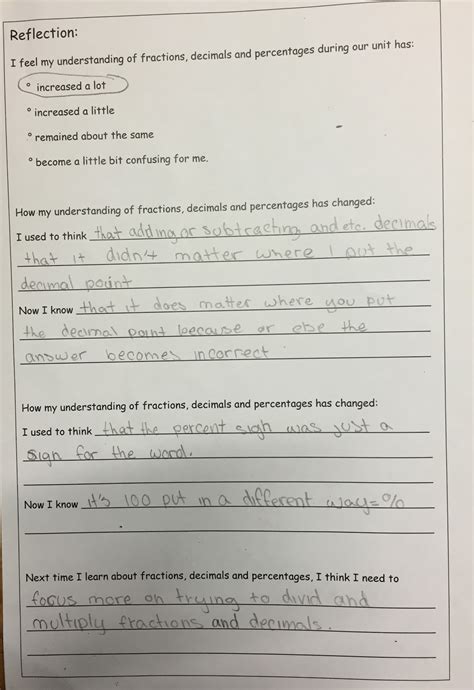 Reflection:
I feel my understanding of fractions, decimals and percentages during our unit has:
° increased a lot
° increased a little
° remained about the same
° become a little bit confusing for me.
How my understanding of fractions, decimals and percentages has changed:
I used to think that adding or subtracting and etc. decimals
that it didn't matter where I put the
decimal point
Now I know that it does matter where you put
the decimal point because or else the
answer becomes incorrect
How my understanding of fractions, decimals and percentages has changed:
I used to think that the percent sigh was just a
sign for the word.
Now I know it's 100 put in a different way=%
Next time I learn about fractions, decimals and percentages, I think I need to
focus more on trying to divid and
multiply fractions and decimals.